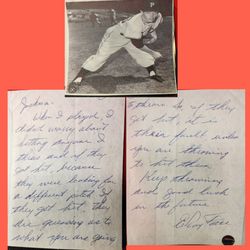 P
Joshua.
When I played, I
didn't worry about
hitting anyone. I
threw and if they
got hit, because
they were looking for
a different pitch. If
they get hit, they
are guessing as to
what you are going
to throw. So if they
got hit, it is
their fault unless
you are throwing
to hit them.
Keep throwing
and good luck
in the future
ElRoy Face